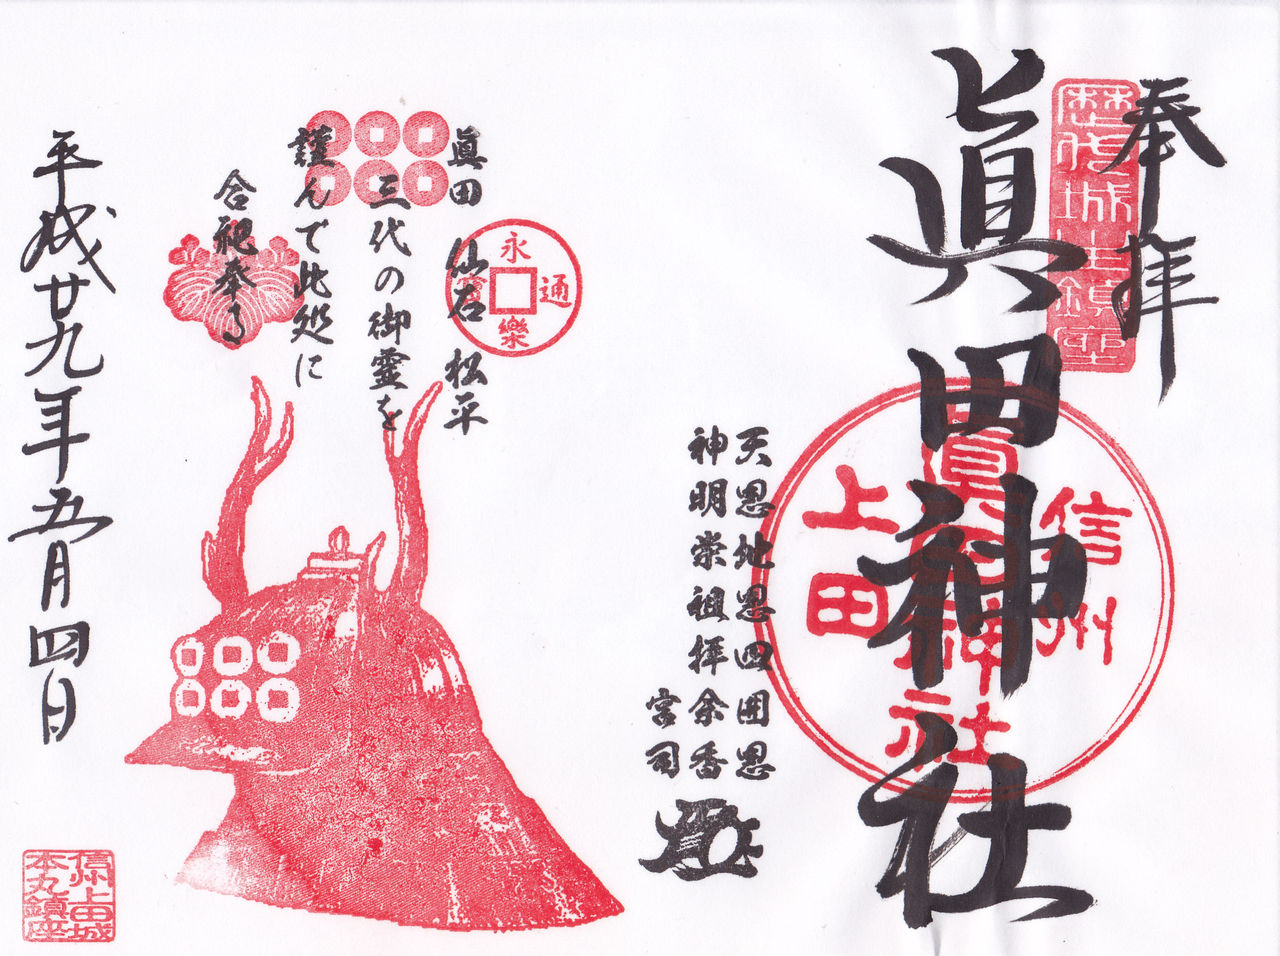 奉拝
歴代城主鎮座
眞田神社
信州
眞田神社
上田
天恩地恩四囲恩
神明崇祖拝余香
宮司
眞田 仙石 松平
三代の御霊を
謹んで此処に
合祀奉る
永樂通
平成廿九年五月四日
信州上田城
本丸鎮座